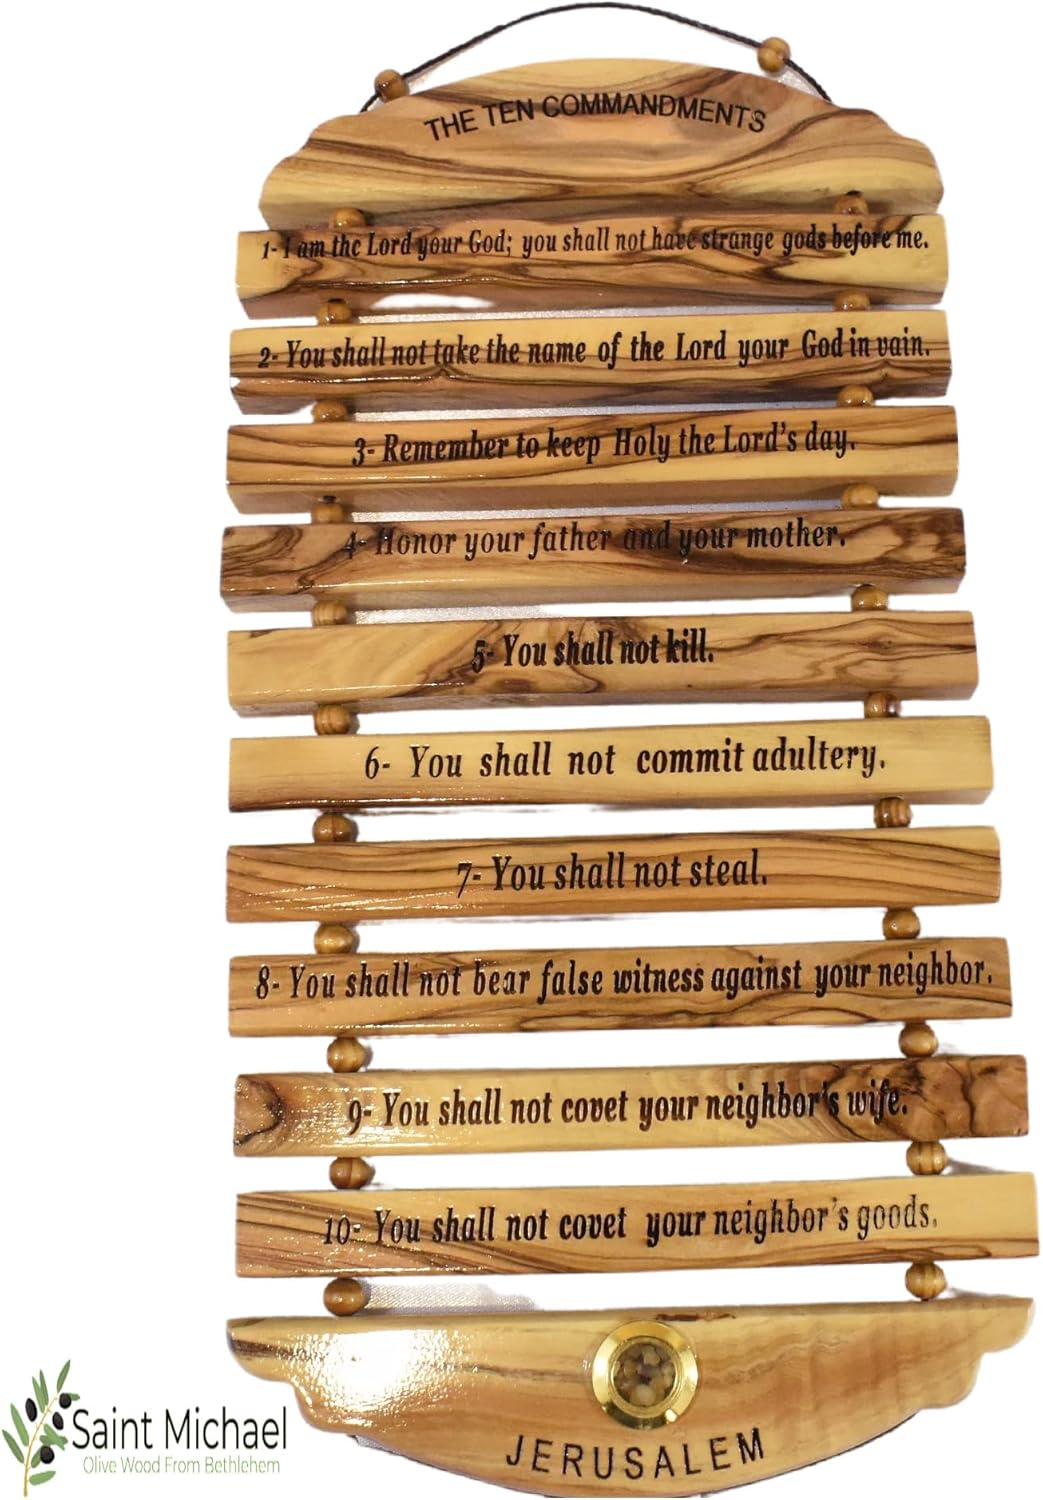 THE TEN COMMANDMENTS
1- I am the Lord your God; you shall not have strange gods before me.
2- You shall not take the name of the Lord your God in vain.
3- Remember to keep Holy the Lord's day.
4- Honor your father and your mother.
5- You shall not kill.
6- You shall not commit adultery.
7- You shall not steal.
8- You shall not bear false witness against your neighbor.
9- You shall not covet your neighbor's wife.
10- You shall not covet your neighbor's goods.
JERUSALEM
Saint Michael
Olive Wood From Bethlehem